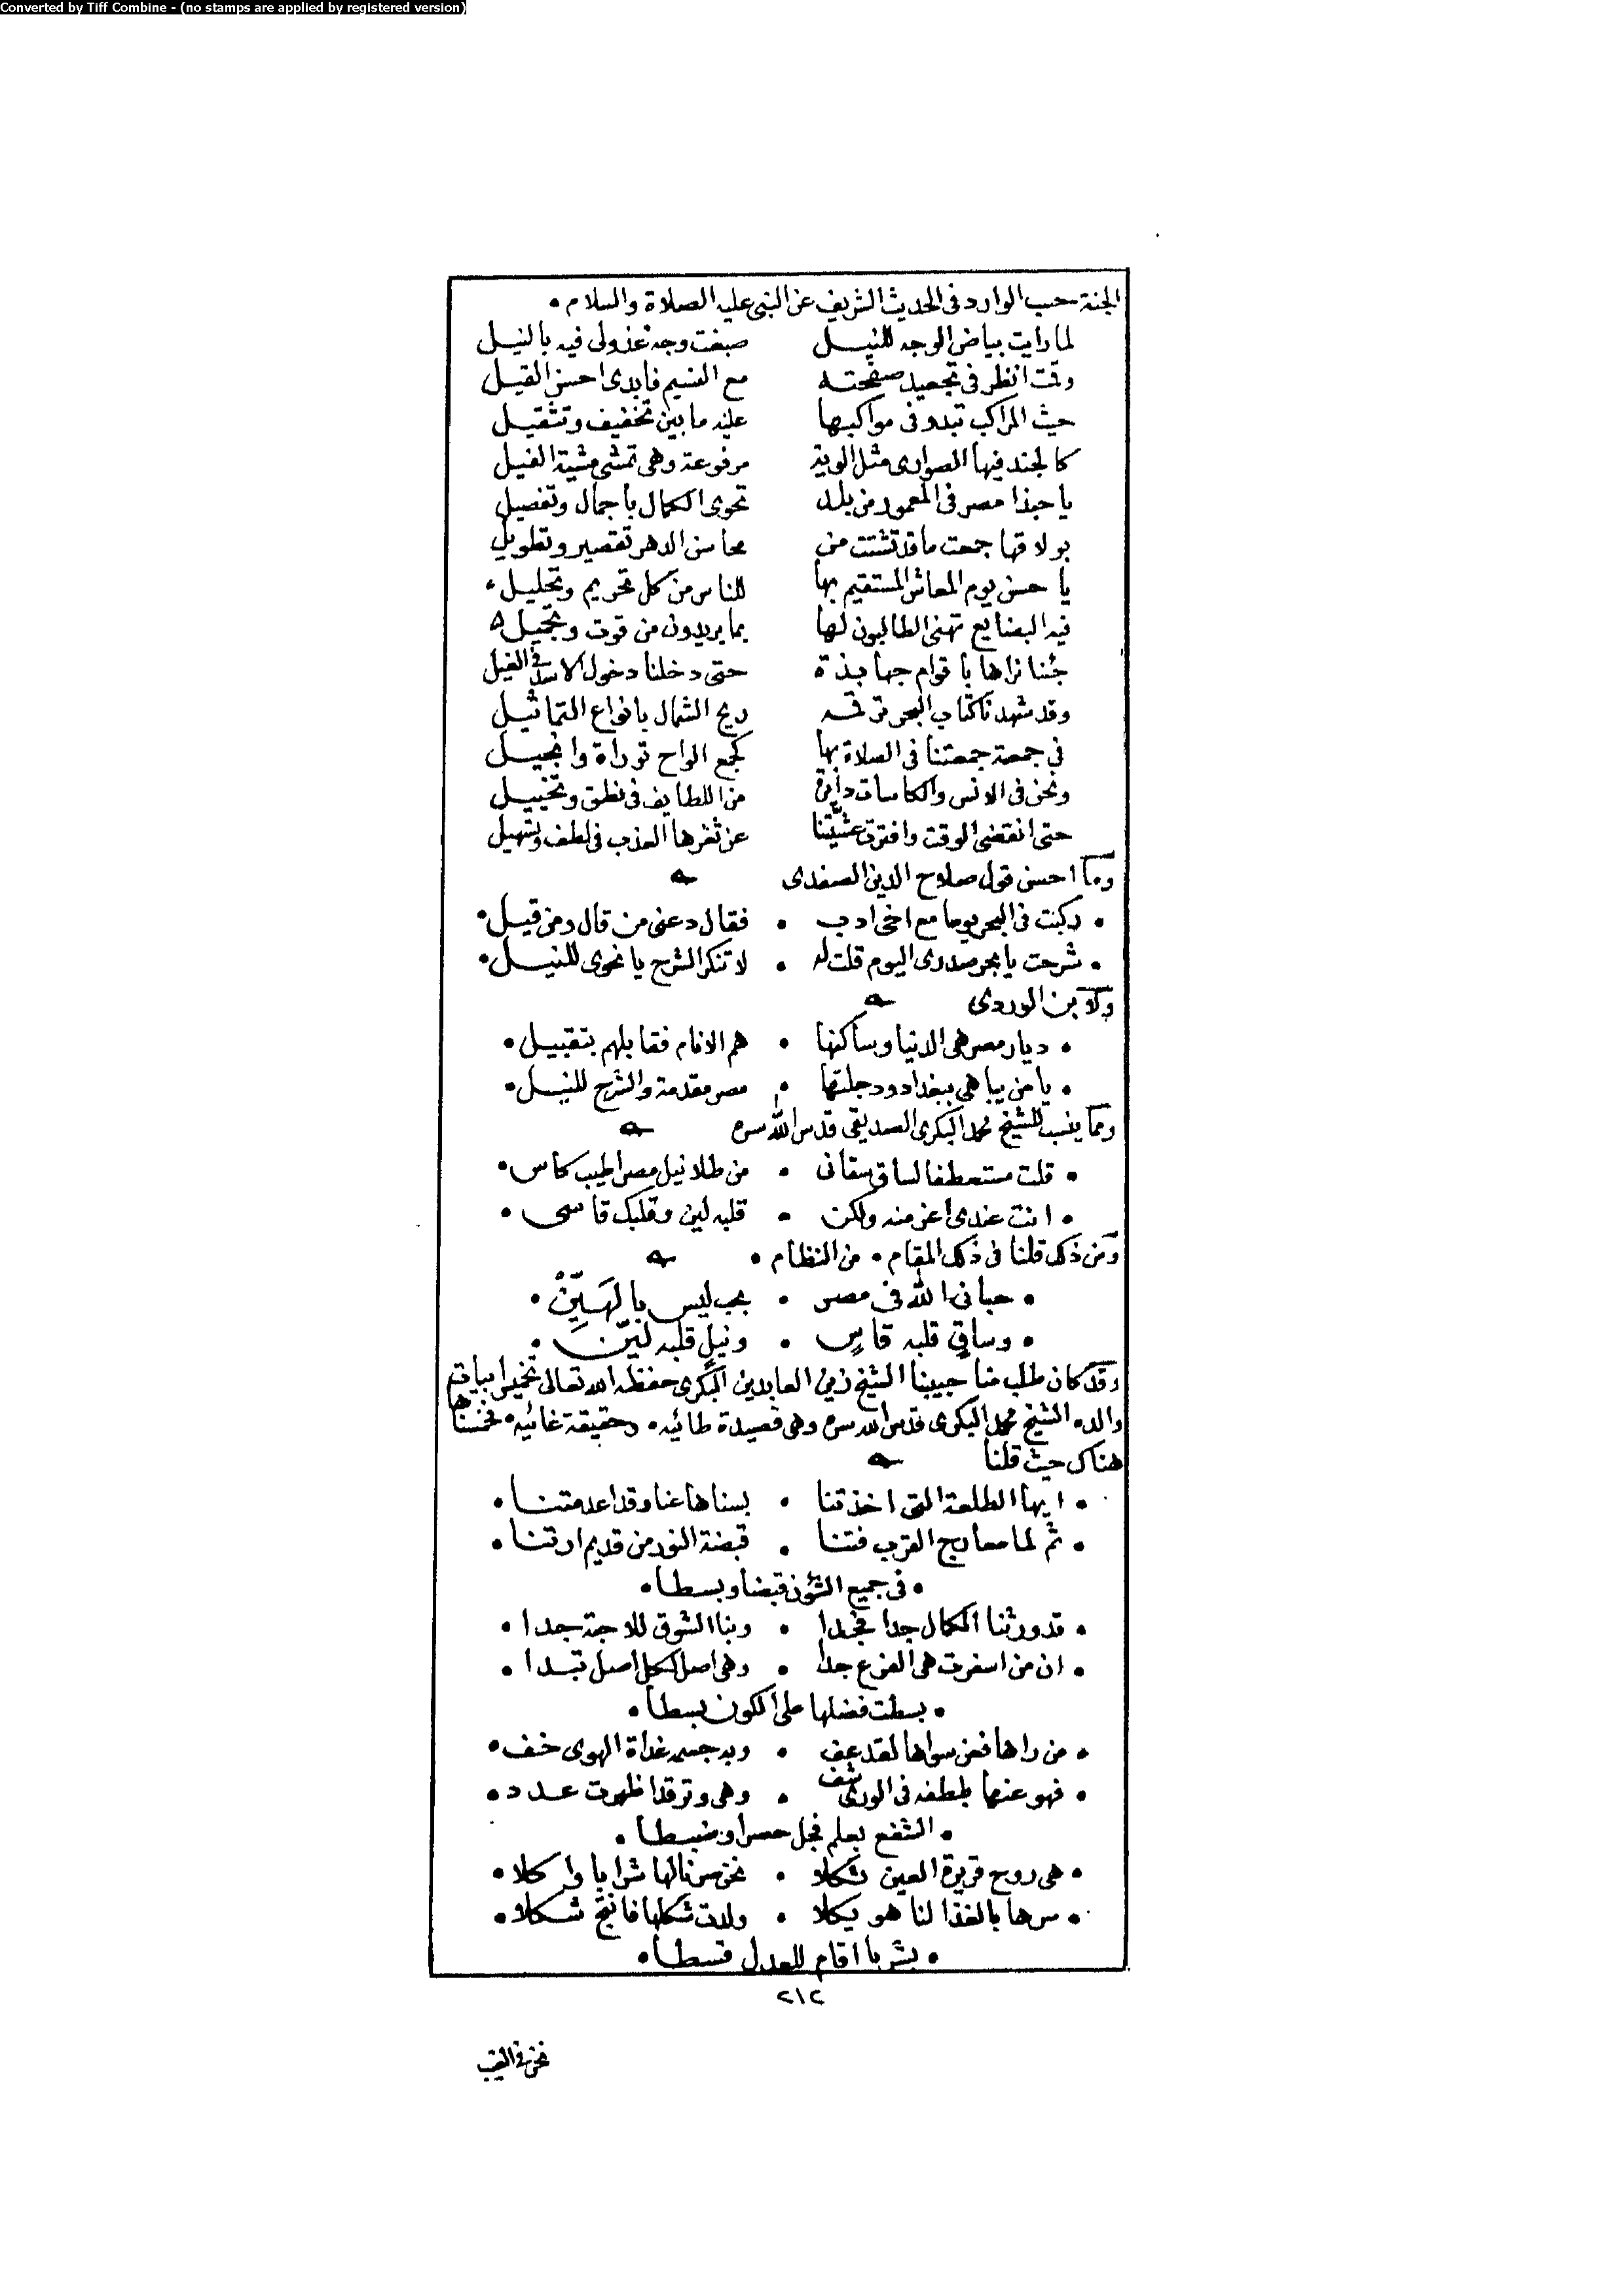 Converted by Tiff Combine - (no stamps are applied by registered version)
الجنة حسب الوارد فى الحديث الشريف عن النبى عليه الصلاة والسلام •
لما رايت بياض الوجه للنيل صبغت وجه عذولى فيه بالنيل
وقمت انظر فى تجعيد صفحته مع النسيم فابدى احسن القيل
حيث المراكب تبدو فى مواكبها عليه ما بين تخفيف وتثقيل
كالجند فيها الصوارى مثل الوية مرفوعة وهى تمشى مشية الفيل
يا حبذا مصر فى المعمور من بلد تحوى الكمال باجمال وتفصيل
بولاقها جمعت ما قد تشتت من محاسن الدهر تقصير وتطويل
يا حسن يوم المعاش المستقيم بها للناس من كل تحريم وتحليل
فيه البضايع تهنى الطالبون لها بما يريدون من قوت
جئنا نراها باقوام جهابذة حتى دخلنا دخول الاسد فى الغيل
وقد شهدنا كتاب البحر ترقمه ريح الشمال بانواع التماثيل
فى جمعة جمعتنا فى الصلاة بها كجمع الواح توراة وانجيل
ونحن فى الانس والكاسات دايرة من اللطايف فى نطق وتخييل
حتى انقضى الوقت وافترت عشيتنا عن ثغرها العذب فى لطف وتسهيل
وما احسن قول صلاح الدين الصفدى
• ركبت فى البحر يوما مع اخى ادب • فقال دعنى من قال ومن قيل •
• شرحت يا بحر صدرى اليوم قلت له • لا تنكر الشرح يا نحوى للنيل •
ولابن الوردى
• ديار مصر هى الدنيا وساكنها • هم الانام فقابلهم بتقبيل •
• يا من يباهى ببغداد ودجلتها • مصر مقدمة والشرح للنيل •
ومما ينسب للشيخ محمد البكرى الصديقى قدس الله سره
• قلت مستعطفا لساق سقانى • من طلا نيل مصر اطيب كاس •
• انت عندى اعز منه ولكن • قلبه لين وقلبك قاسى •
ومن ذلك قلنا فى ذلك المقام • من النظام •
• حبانى الله فى مصر • بحب ليس بالهَيِّنْ •
• وساقٍ قلبه قاسٍ • ونيلٍ قلبه ليّن •
وقد كان طلب منا حبيبنا الشيخ زين العابدين البكرى حفظه الله تعالى تخميس ابيات
والده الشيخ محمد البكرى قدس الله سره وهى قصيدة طائيه • وحقيقة غائيه • فخمسناها
هناك حيث قلنا
• ايها الطلعة التى اخذتنا • بسناها عنا وقد اعدمتنا •
• ثم لما معارج القرب فتنا • قبضة النور من قديم ارتنا •
• فى جميع الشؤن قبضا وبسطا •
• قد ورثنا الكمال جدا فجدا • وبنا الشوق للاحبة جدا •
• ان من اسفرت هى الفرع جدا • وهى اصل لكل اصل تبدا •
• بسطت فضلها على الكون بسطا •
• من راها فعن سواها لقد عف • وبه جسمه غداة الهوى خف •
• فهو عنها بلطفه فى الورى شف • وهى وتر قد اظهرت عدد •
• الشفع بعلم فجل حصرا وضبطا •
• هى روح قريرة العين شكلا • نحن سر نالها شرابا واكلا •
• سرها بالغذا لنا هو يكلا • ولدت شكلها فانتج شكلا •
• بشر يا اقام للعدل قسطا •
٢١٢